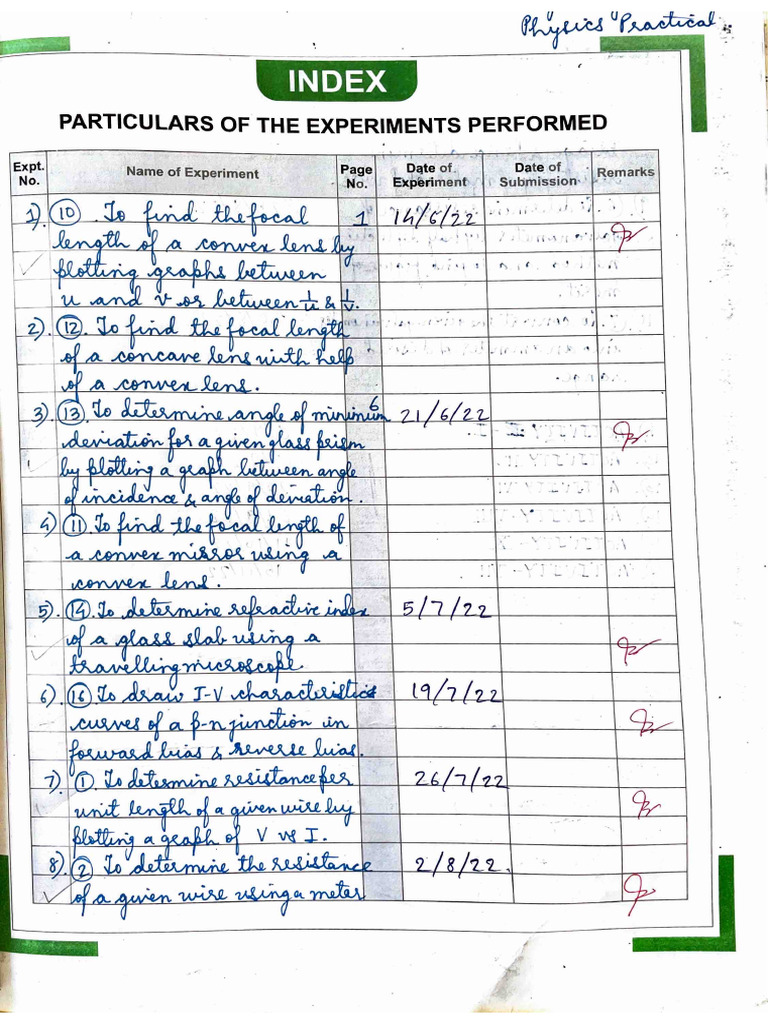 Physics Practical
INDEX
PARTICULARS OF THE EXPERIMENTS PERFORMED
Expt. No. Name of Experiment Page No. Date of Experiment Date of Submission Remarks
1). (10). To find the focal 1 14/6/22
length of a convex lens by
plotting graphs between
u and v or between 1/u & 1/v.
2). (12). To find the focal length
of a concave lens with help
of a convex lens.
3). (13). To determine angle of minimum 6 21/6/22
deviation for a given glass prism
by plotting a graph between angle
of incidence & angle of deviation.
4) (11). To find the focal length of
a convex mirror using a
convex lens.
5). (14). To determine refractive index 5/7/22
of a glass slab using a
travelling microscope.
6). (16) To draw I-V characteristics 19/7/22
curves of a p-n junction in
forward bias & reverse bias.
7). (1). To determine resistance per 26/7/22
unit length of a given wire by
plotting a graph of V vs I.
8). (2) To determine the resistance 2/8/22.
of a given wire using a meter